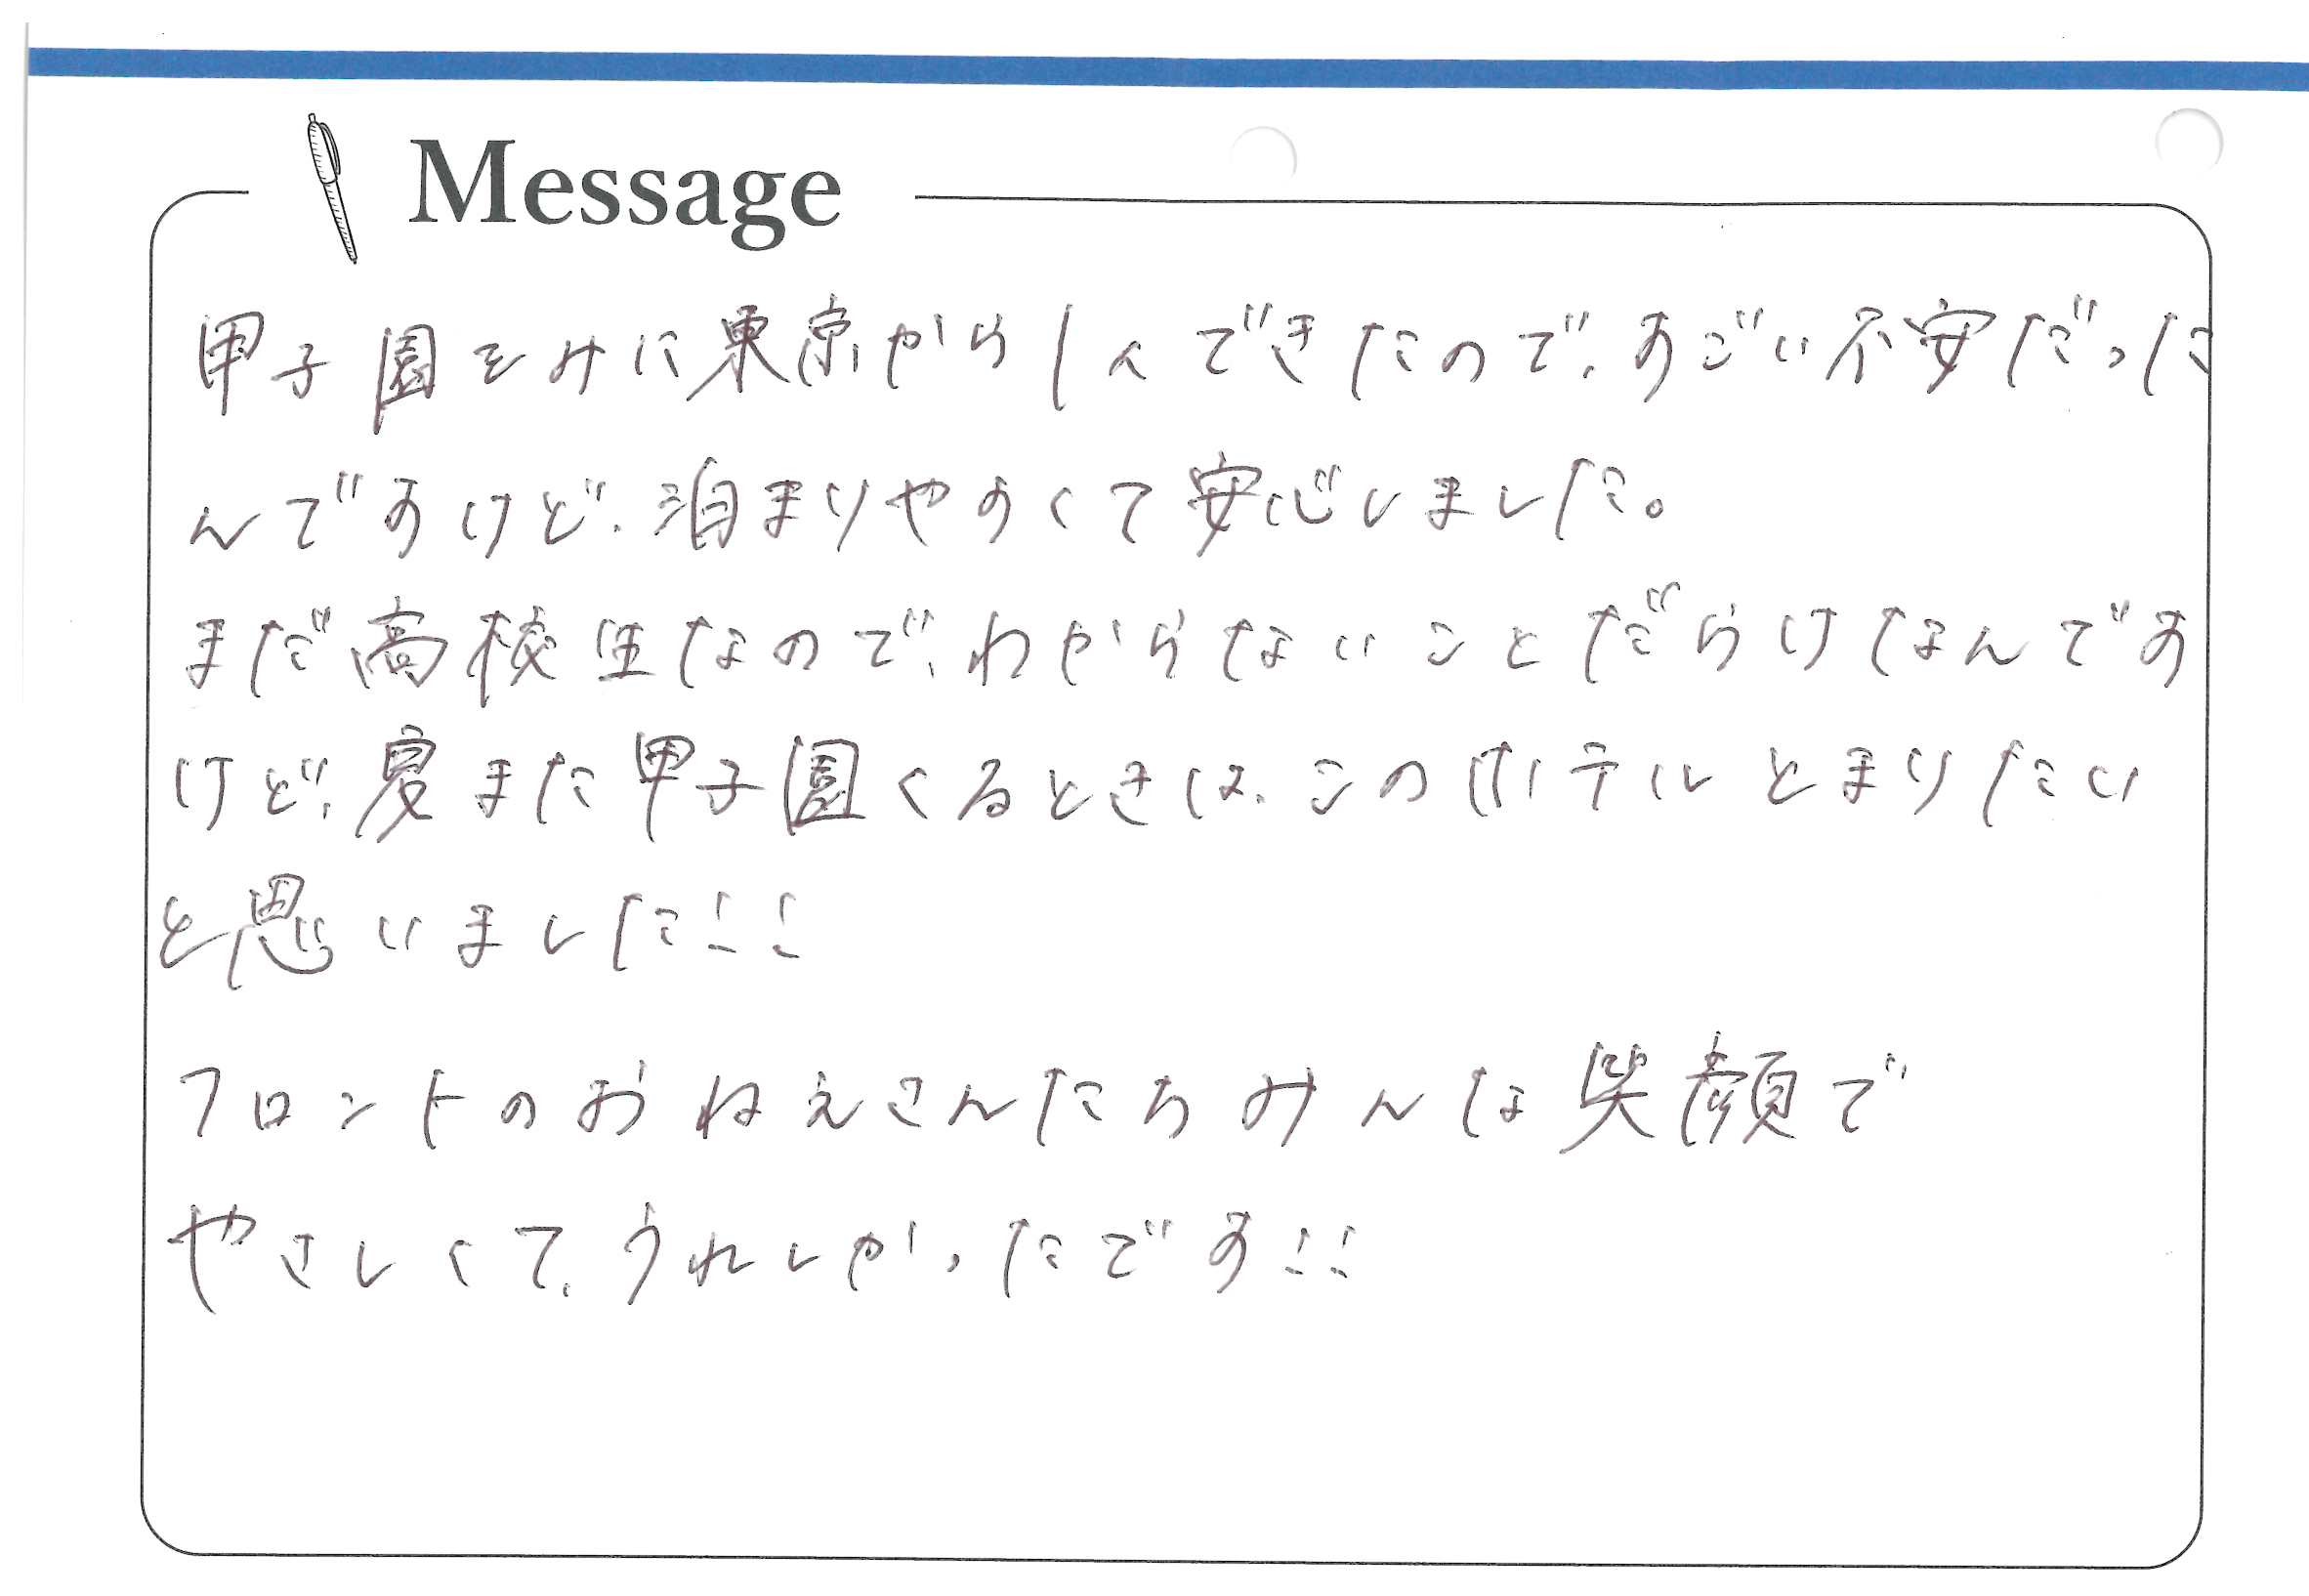 Message
甲子園をみに東京から1人できたので、すごい不安だった
んですけど、泊まりやすくて安心しました。
まだ高校生なので、わからないことだらけなんです
けど、夏また甲子園くるときは、このホテルとまりたい
と思いました!!
フロントのおねえさんたちみんな笑顔で
やさしくて、うれしかったです!!